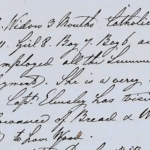 Widow 3 Months Catholic
Girl 8. Boy 7. Boy 6 a
mployed all the Summer
She is a very
Capt. Elmsley has visi
owance of Bread & W
to from Wood.